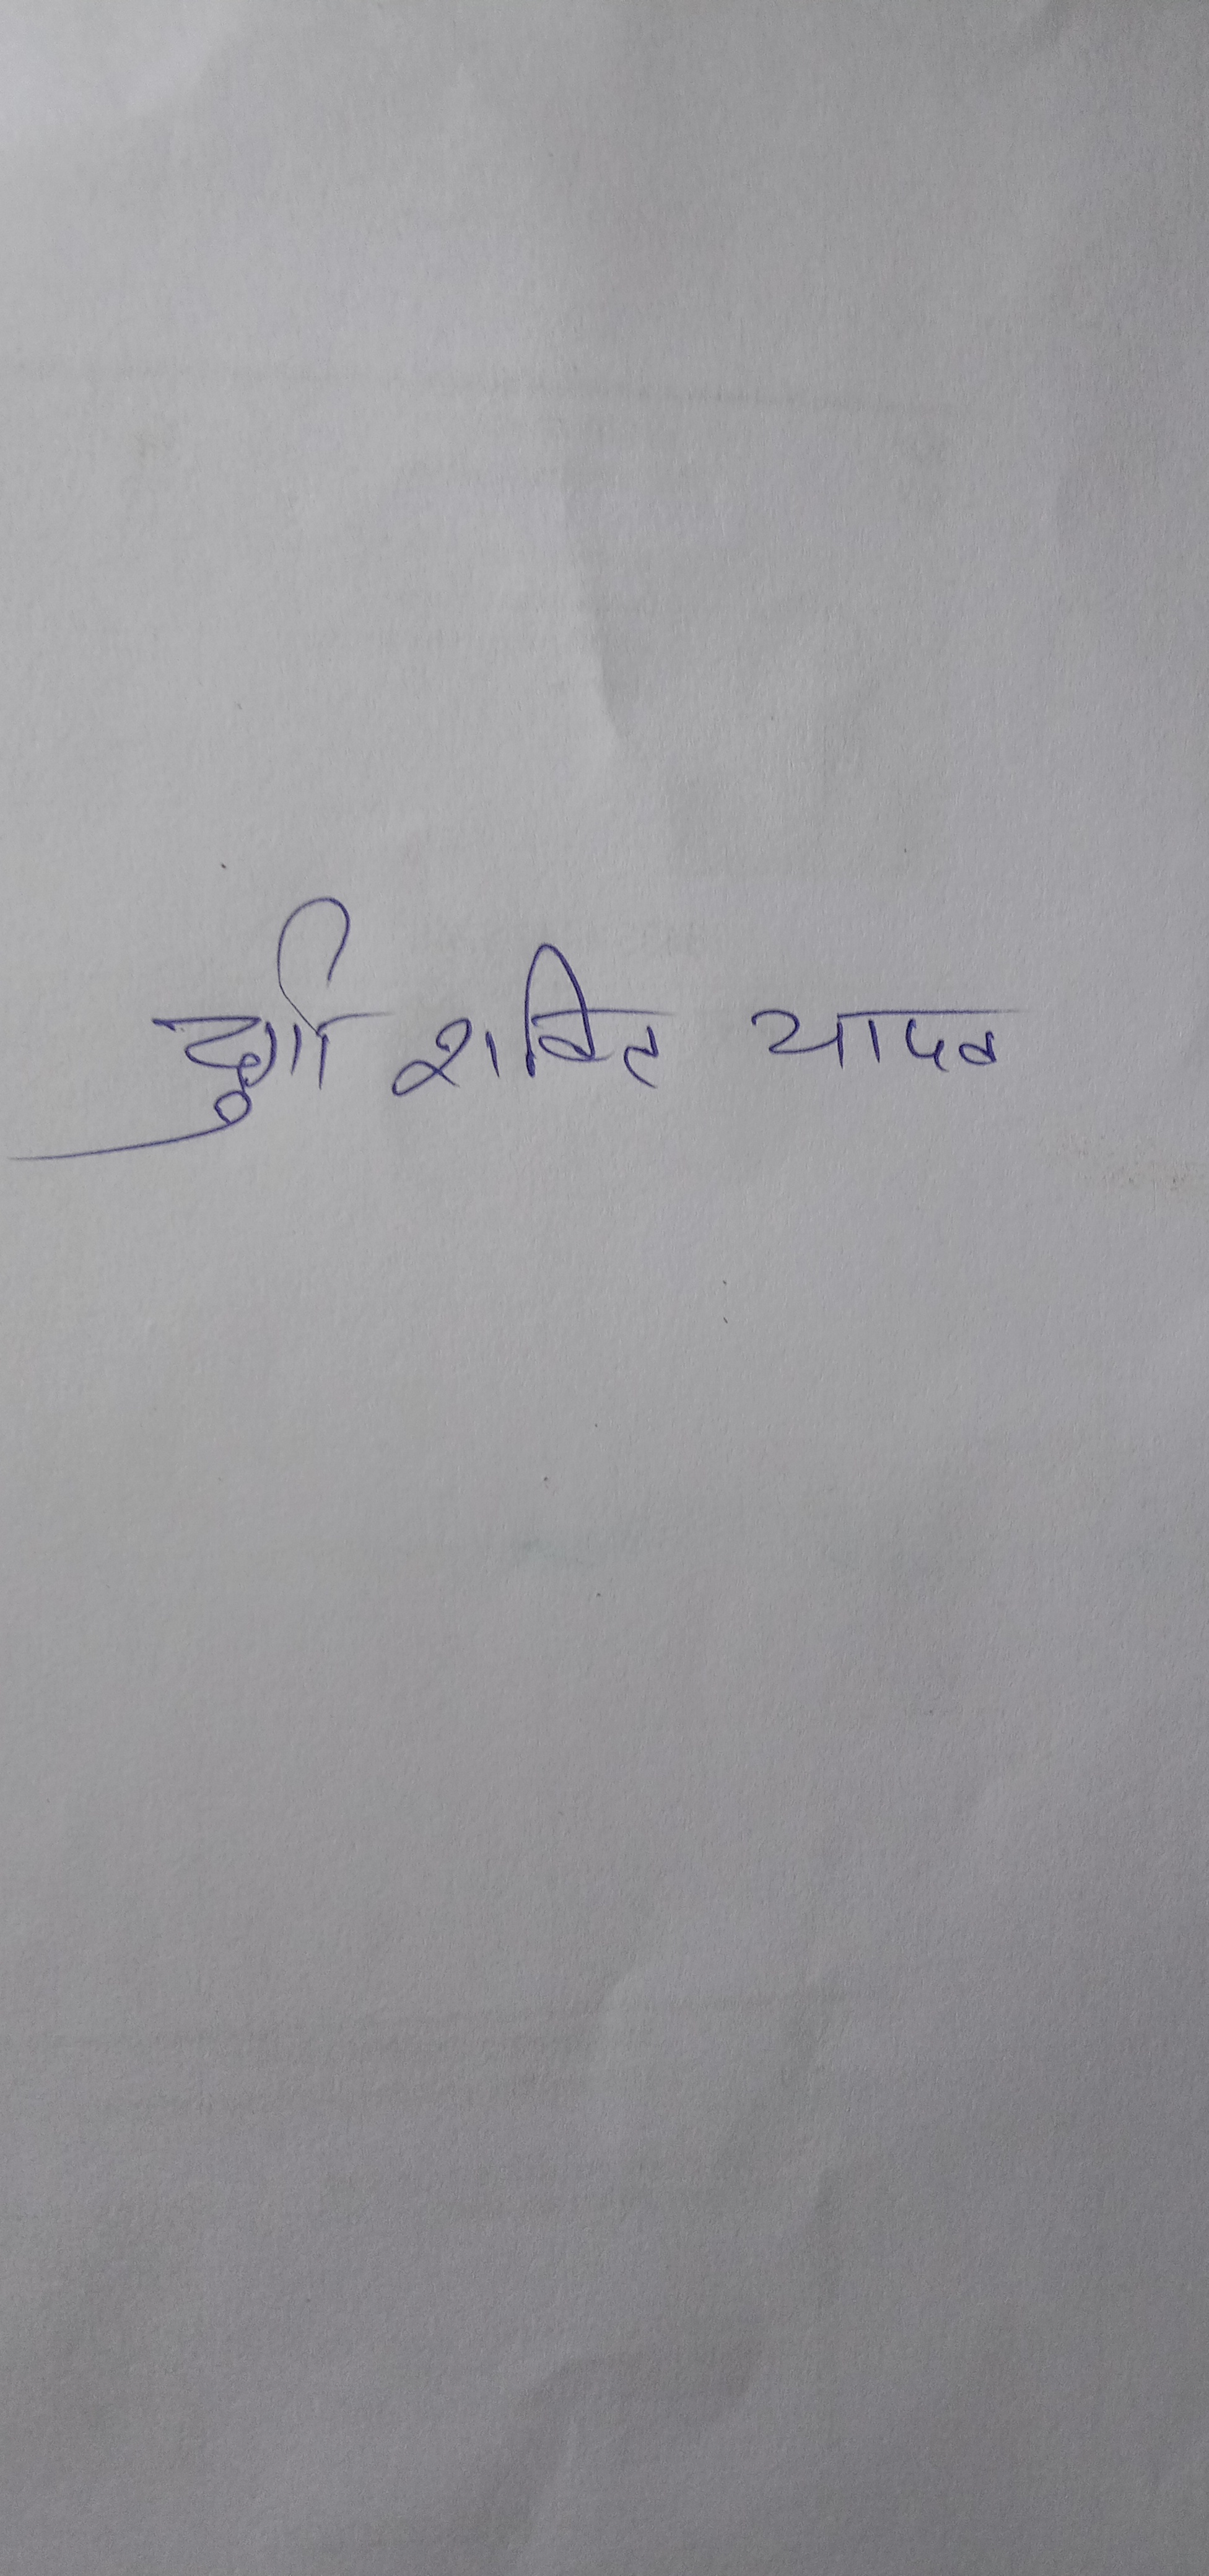 दुर्गा शक्ति यादव